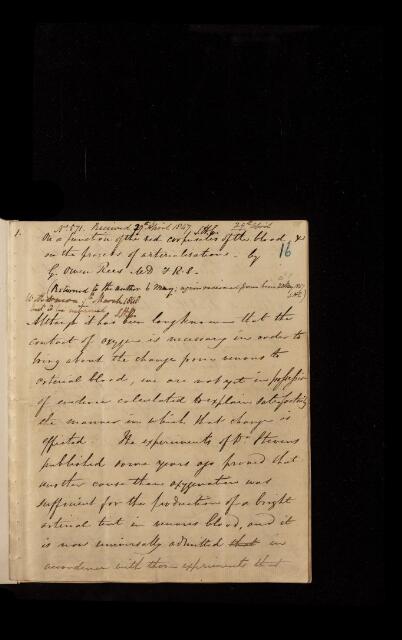 1.
No. 571. Received 29th April 1847. S.H.C. 29th April
On a function of the red corpuscles of the blood, &
on the process of arterialisation. - by 16
G. Owen Rees M.D. F.R.S. -
(Returned to the author 6 May; again received from him 20 May
March 1848
Although it has been long known that the
contact of oxygen is necessary in order to
bring about the change from venous to
arterial blood, we are not yet in possession
of evidence calculated to explain satisfactorily
the manner in which that change is
effected. The experiments of Dr. Stevens
published some years ago proved that
another cause than oxygenation was
sufficient for the production of a bright
arterial tint in venous blood, and it
is now universally admitted that in
accordance with those experiments that